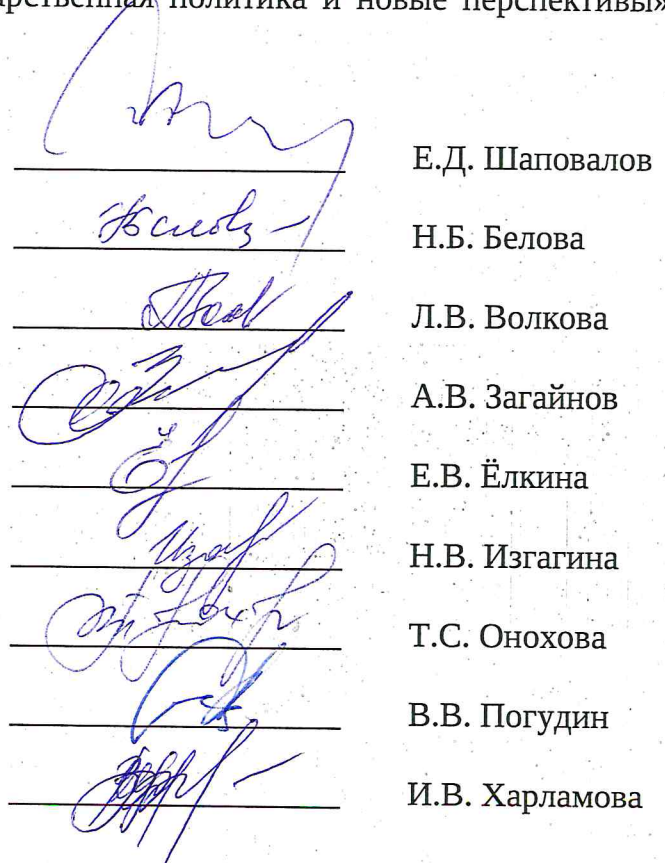 политика и новые перспективы»
Е.Д. Шаповалов
Н.Б. Белова
Л.В. Волкова
А.В. Загайнов
Е.В. Ёлкина
Н.В. Изгагина
Т.С. Онохова
В.В. Погудин
И.В. Харламова